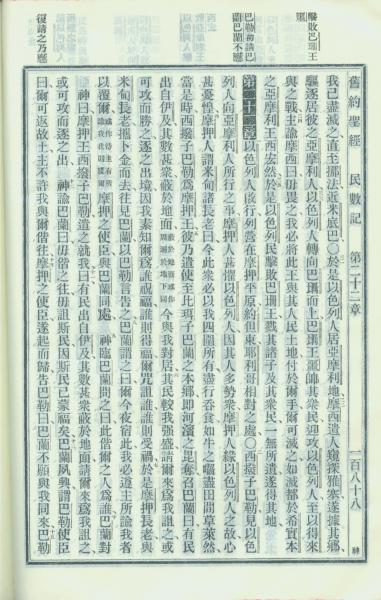 舊約聖經 民數記 第二十二章 一百八十八
擊敗巴珊王噩
巴勒初請巴蘭巴蘭不應
復請之乃應
我已盡滅之直至挪法近米底巴○於是以色列人居亞摩利地摩西遣人窺探雅塞遂據其鄉
驅逐居彼之亞摩利人以色列人轉向巴珊而上巴珊王噩帥其衆民出攻以色列人至以得來
與之戰主諭摩西曰毋畏之我必將此王與其人民土地付於爾手爾可滅之如滅都於希實本
之亞摩利王西宏然於是以色列民擊敗巴珊王噩戮其諸子及其衆民一無所遺遂得其地
第二十二章 以色列人啟行列營在摩押平原約但東耶利哥相對之處○西撥子巴勒見以色
列人向亞摩利人所行之事摩押人大懼以色列人因其人多勢衆摩押人緣以色列人之故心
甚憂惶摩押人謂米甸諸長老曰今此衆必以我四圍所有盡行吞食如牛之嚙盡田間草萊然
當是時西撥子巴勒爲摩押王彼乃遣使至比珥子巴蘭之本鄉即河濱之毘奪召巴蘭曰有民
出自伊及其數甚衆蔽於地面今與我對居其民較我強盛請爾來爲我詛之或
可攻而勝之逐之出境因我素知爾爲誰祝福誰則得福爾咒詛誰誰則受禍於是摩押長老與
米甸長老攜卜金而去往見巴蘭以巴勒言告之巴蘭謂之曰爾今夜宿此我必遵主所諭我者
以覆爾摩押之使臣與巴蘭同處 神臨巴蘭問之曰此偕爾之人爲誰巴蘭對
神曰摩押王西撥子巴勒遣之就我曰有民出自伊及其數甚衆蔽於地面請爾來爲我詛之
或可攻而逐之出 神諭巴蘭曰毋偕之往毋詛斯民因斯民已蒙福矣巴蘭夙興謂巴勒使臣
曰爾可返故土主不許我與爾偕往摩押之使臣遂起而歸告巴勒曰巴蘭不願與我同來巴勒